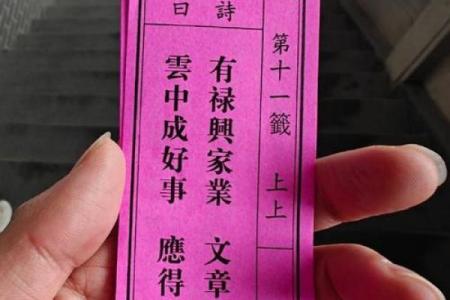 第十一籤 上上
詩曰
有禄興家業 文章
雲中成好事 應得